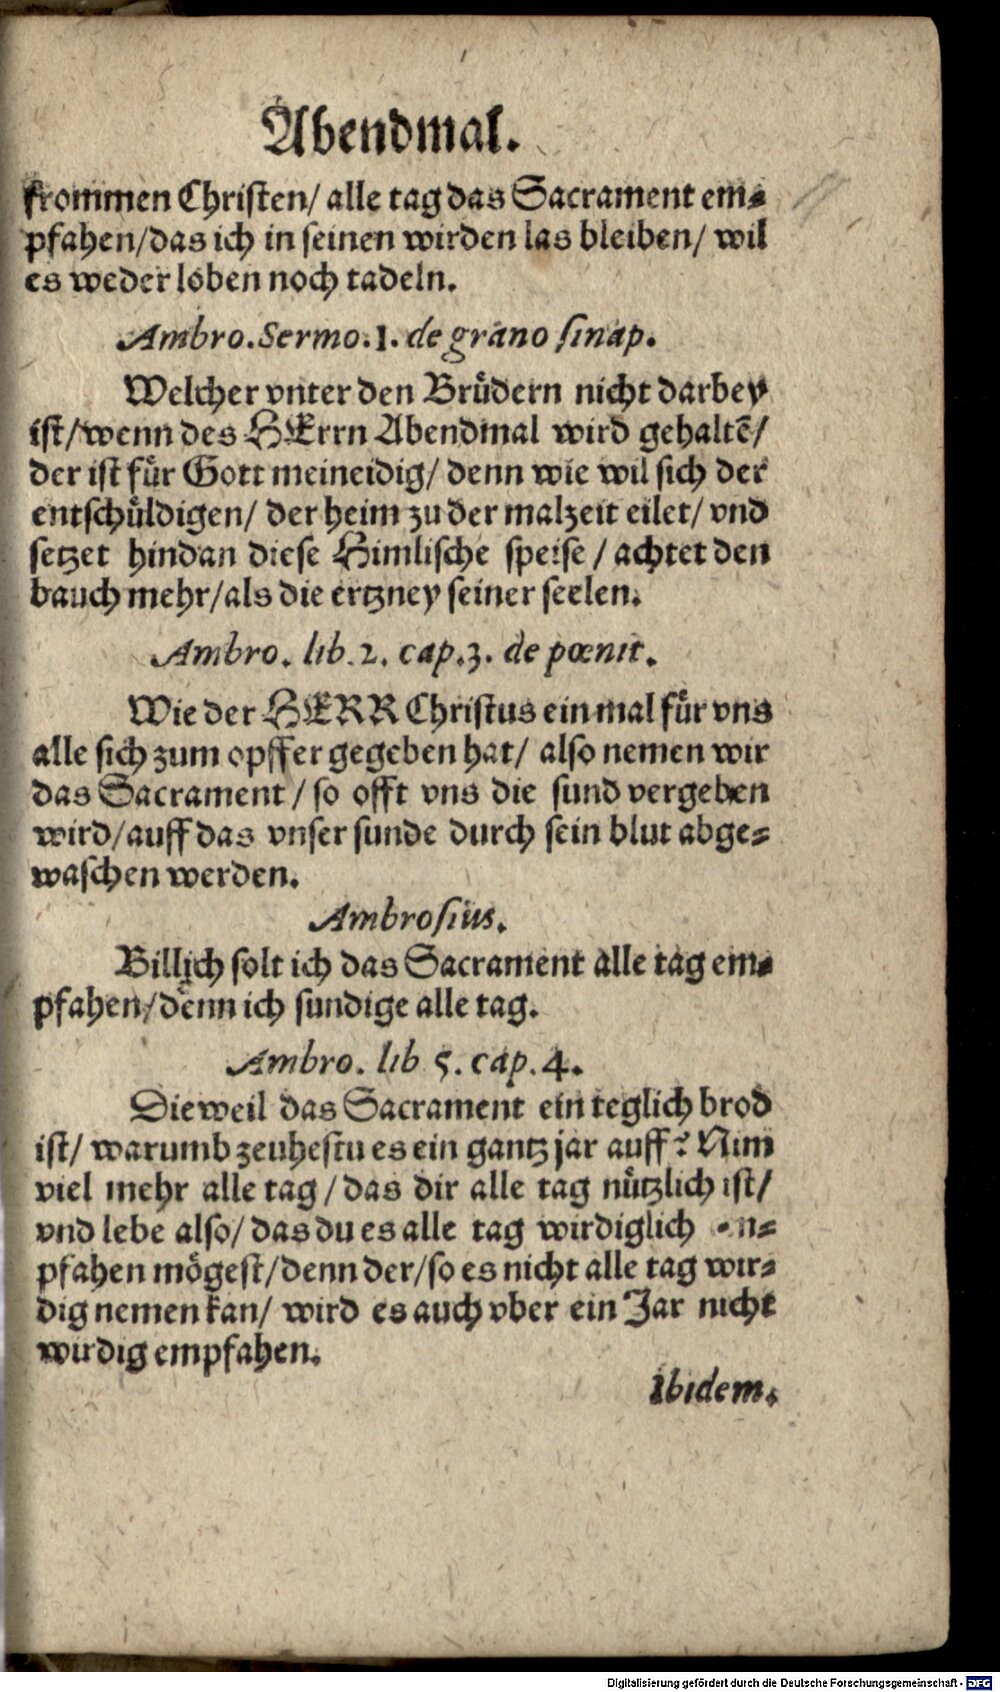 Abendmal.
frommen Christen/ alle tag das Sacrament em-
pfahen/das ich in seinen wirden las bleiben/ wil
es weder loben noch tadeln.
Ambro. Sermo. 1. de grano sinap.
Welcher vnter den Brüdern nicht darbey
ist/ wenn des HErrn Abendmal wird gehaltẽ/
der ist für Gott meineidig/ denn wie wil sich der
entschüldigen/ der heim zu der malzeit eilet/ vnd
setzet hindan diese Himlische speise / achtet den
bauch mehr/als die ertzney seiner seelen.
Ambro. lib. 2. cap. 3. de pœnit.
Wie der HERR Christus ein mal für vns
alle sich zum opffer gegeben hat/ also nemen wir
das Sacrament / so offt vns die sund vergeben
wird/auff das vnser sunde durch sein blut abge-
waschen werden.
Ambrosius.
Billich solt ich das Sacrament alle tag em-
pfahen/denn ich sundige alle tag.
Ambro. lib 5. cap. 4.
Dieweil das Sacrament ein teglich brod
ist/ warumb zeuhestu es ein gantz jar auff? Nim
viel mehr alle tag / das dir alle tag nützlich ist/
vnd lebe also/ das du es alle tag wirdiglich
pfahen mögest/denn der/so es nicht alle tag wir-
dig nemen kan/ wird es auch vber ein Jar nicht
wirdig empfahen.
Ibidem.
Digitalisierung gefördert durch die Deutsche Forschungsgemeinschaft - DFG